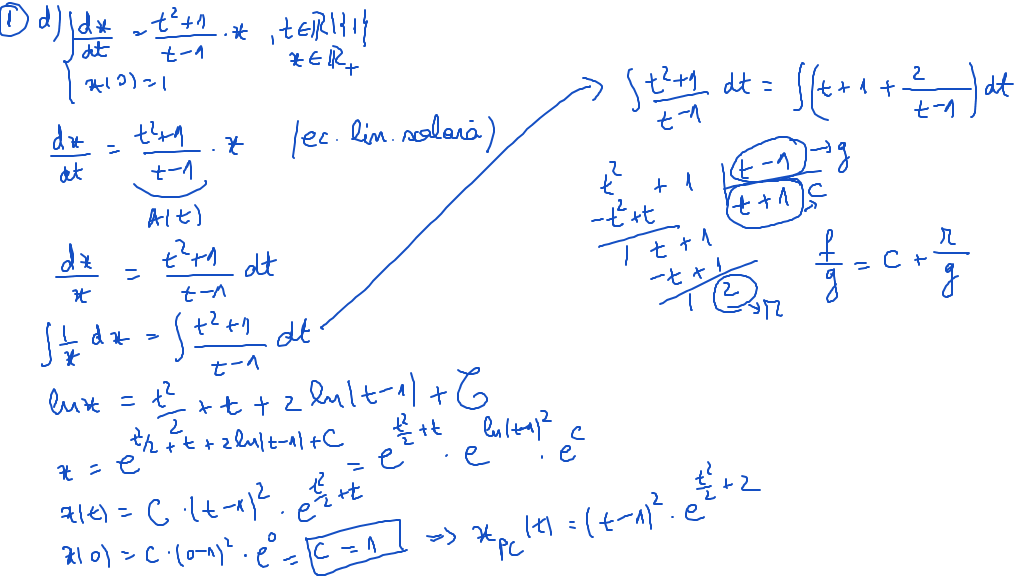 ① d) { dx/dt = (t²+1)/(t-1) · x , t∈ℝ\{1}
x(0)=1 x∈ℝ₊
dx/dt = (t²+1)/(t-1) · x (ec. lin. scalară)
A(t)
dx/x = (t²+1)/(t-1) dt
∫ 1/x dx = ∫ (t²+1)/(t-1) dt
ln x = t²/2 + t + 2 ln|t-1| + C
x = e^(t²/2 + t + 2ln|t-1| + C) = e^(t²/2 + t) · e^(ln(t-1)²) · e^C
x(t) = C · (t-1)² · e^(t²/2 + t)
x(0) = C · (0-1)² · e⁰ = C = 1 => x_PC(t) = (t-1)² · e^(t²/2 + 2)
∫ (t²+1)/(t-1) dt = ∫ (t + 1 + 2/(t-1)) dt
t² + 1 | t-1 → g
-t² + t | t+1 → C
/ t + 1
-t + 1
/ 2 → r
f/g = C + r/g